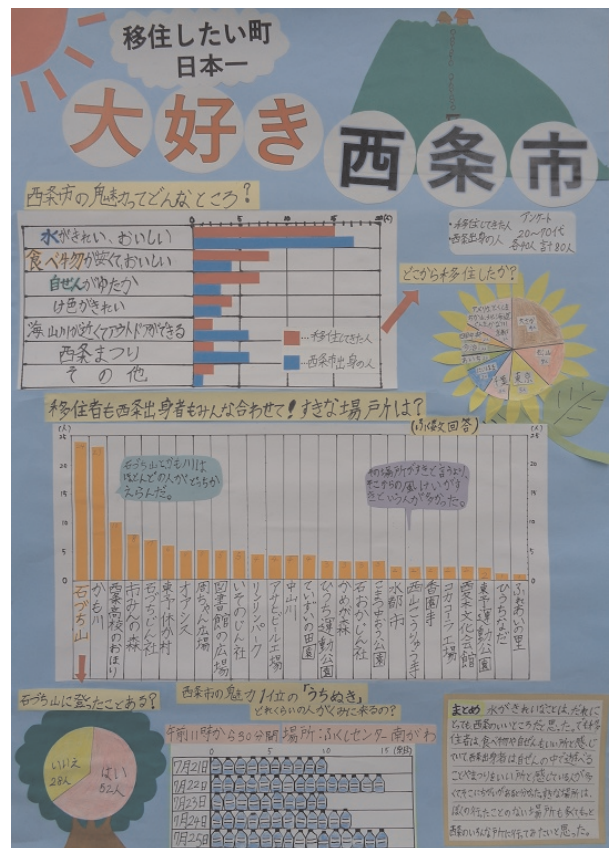 移住したい町
日本一
大好き西条市
西条市の魅力ってどんなところ?
アンケート
・移住してきた人
・西条出身の人
20〜70代
各40人 計80人
5
10
15
(人)
水がきれい、おいしい
食べ物が安くて、おいしい
自ぜんがゆたか
け色がきれい
海山川が近くてアウトドアができる
西条まつり
その他
…移住してきた人
…西条市出身の人
どこから移住したか?
松山
東京
千葉
移住者も西条出身者もみんな合わせて!すきな場所は?
(ふく数回答)
(人)
25
20
15
10
5
0
石づち山とかも川は
ほとんどの人がどっちか
えらんだ。
その場所がすきと言うより、
そこからの風けいがす
きという人が多かった。
石づち山
かも川
西条高校のおほり
市みんの森
石づちじん社
東予休か村
オアシス
周ちゃん広場
図書館の広場
いそのじん社
リンリンパーク
アサヒビール工場
中山川
ていずいの田園
ひうち運動公園
かめが森
石おかじん社
こまつ中おう公園
水都市
西山こうりゅう寺
香園寺
コカコーラ工場
愛文木文化会館
東予運動公園
ひうちなだ
ふれあいの里
石づち山に登ったことある?
いいえ
28人
はい
52人
西条市の魅力1位の「うちぬき」
どれくらいの人がくみに来るの?
午前11時から30分間 場所:ふくしセンター南がわ
5
10
15
7月21日
7月22日
7月23日
7月24日
7月25日
まとめ 水がきれいなことは、だれに
とっても西条のいいところだと思った。でも移
住者は食べ物や自ぜんもいい所と感じ
ていて西条出身者は自ぜんの中で遊べる
ことやまつりもいい所と感じている人が多
くてそこにちがいがあると分かった。好きな場所は、
ぼくの行ったことのない場所も多くてもっと
西条のいろんな所に行ってみたいと思った。